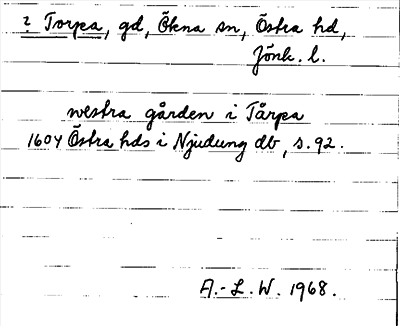 ? Torpa, gd, Ökna sn, Östra hd,
Jönk. l.
westra gården i Tårpa
1604 Östra hds i Njudung db, s. 92.
A.-L. W. 1968.